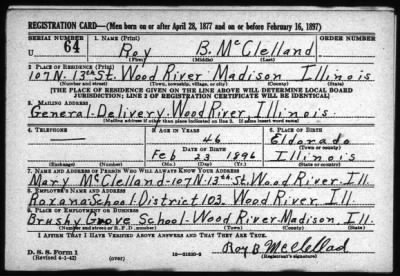 REGISTRATION CARD—(Men born on or after April 28, 1877 and on or before February 16, 1897)
SERIAL NUMBER 1. NAME (Print) ORDER NUMBER
U 64 Roy B. McClelland
(First) (Middle) (Last)
2. PLACE OF RESIDENCE (Print)
107 N. 13th St. Wood River Madison Illinois
(Number and street) (Town, township, village, or city) (County) (State)
[THE PLACE OF RESIDENCE GIVEN ON THE LINE ABOVE WILL DETERMINE LOCAL BOARD
JURISDICTION; LINE 2 OF REGISTRATION CERTIFICATE WILL BE IDENTICAL]
3. MAILING ADDRESS
General-Delivery-Wood River Illinois.
[Mailing address if other than place indicated on line 2. If same insert word same]
4. TELEPHONE 5. AGE IN YEARS 6. PLACE OF BIRTH
46 Eldorado
DATE OF BIRTH (Town or county)
Feb 23 1896 Illinois
(Exchange) (Number) (Mo.) (Day) (Yr.) (State or country)
7. NAME AND ADDRESS OF PERSON WHO WILL ALWAYS KNOW YOUR ADDRESS
Mary McClelland-107 N. 13th St. Wood River. Ill.
8. EMPLOYER'S NAME AND ADDRESS
Roxana School-District 103. Wood River Ill.
9. PLACE OF EMPLOYMENT OR BUSINESS
Brushy Grove School-Wood River-Madison Ill.
(Number and street or R. F. D. number) (Town) (County) (State)
I AFFIRM THAT I HAVE VERIFIED ABOVE ANSWERS AND THAT THEY ARE TRUE.
D. S. S. Form 1 Roy B McClellad
(Revised 4-1-42) (over) (Registrant's signature)